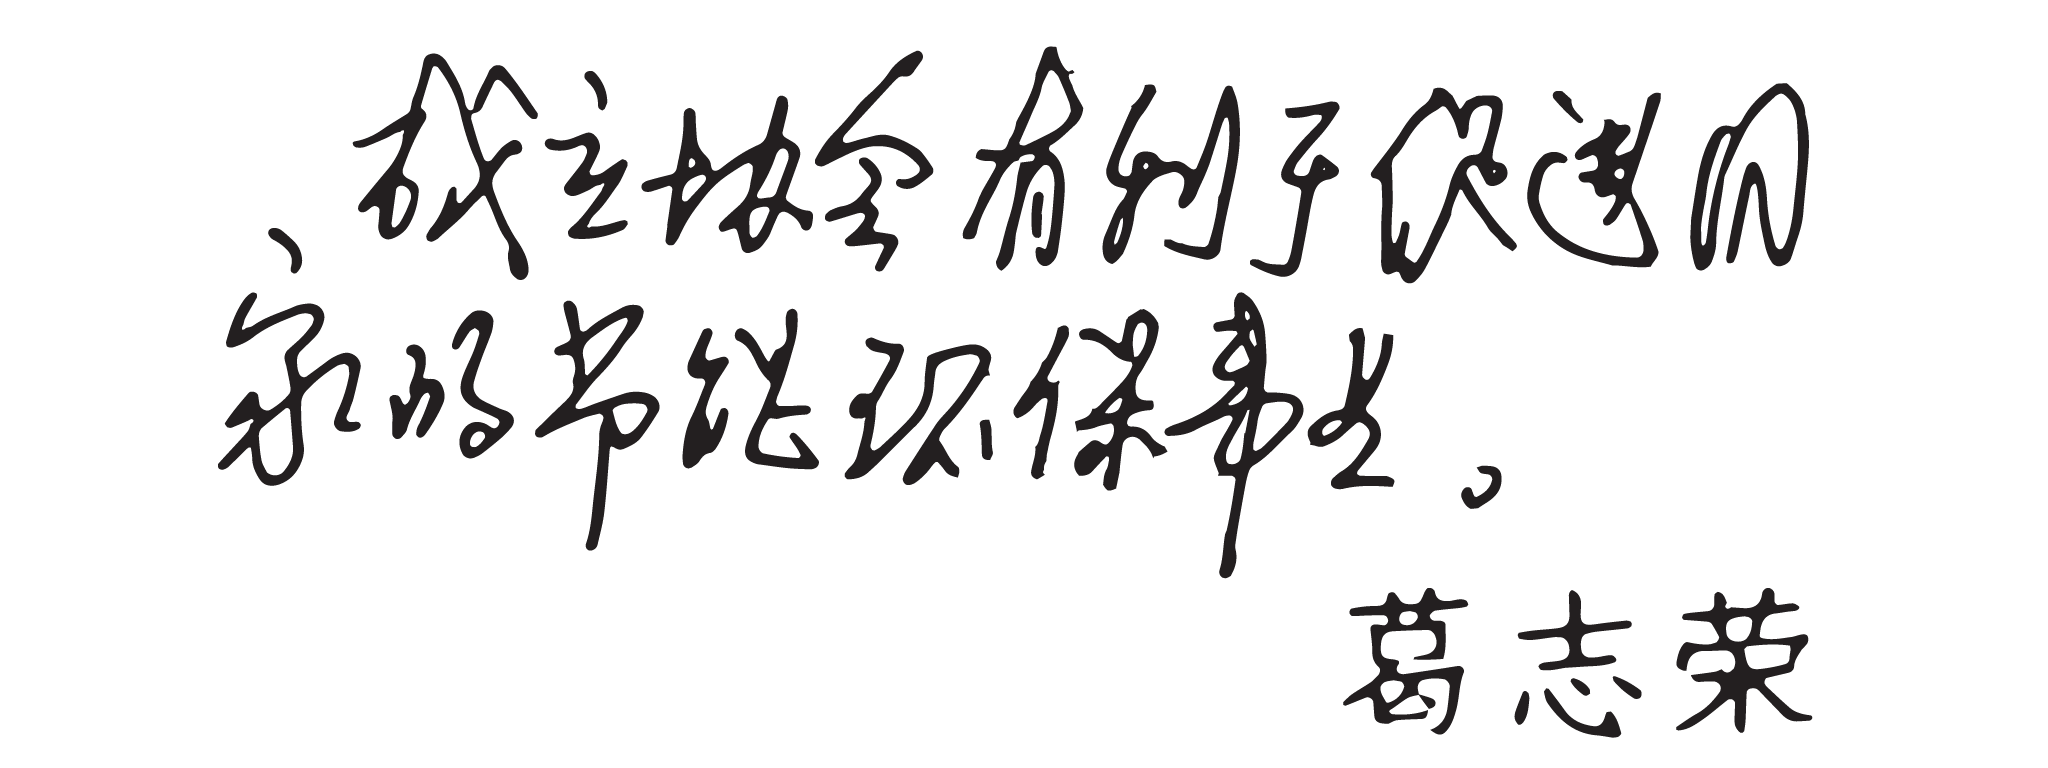 成立协会有利于促进国
家的节能环保事业。
葛志荣